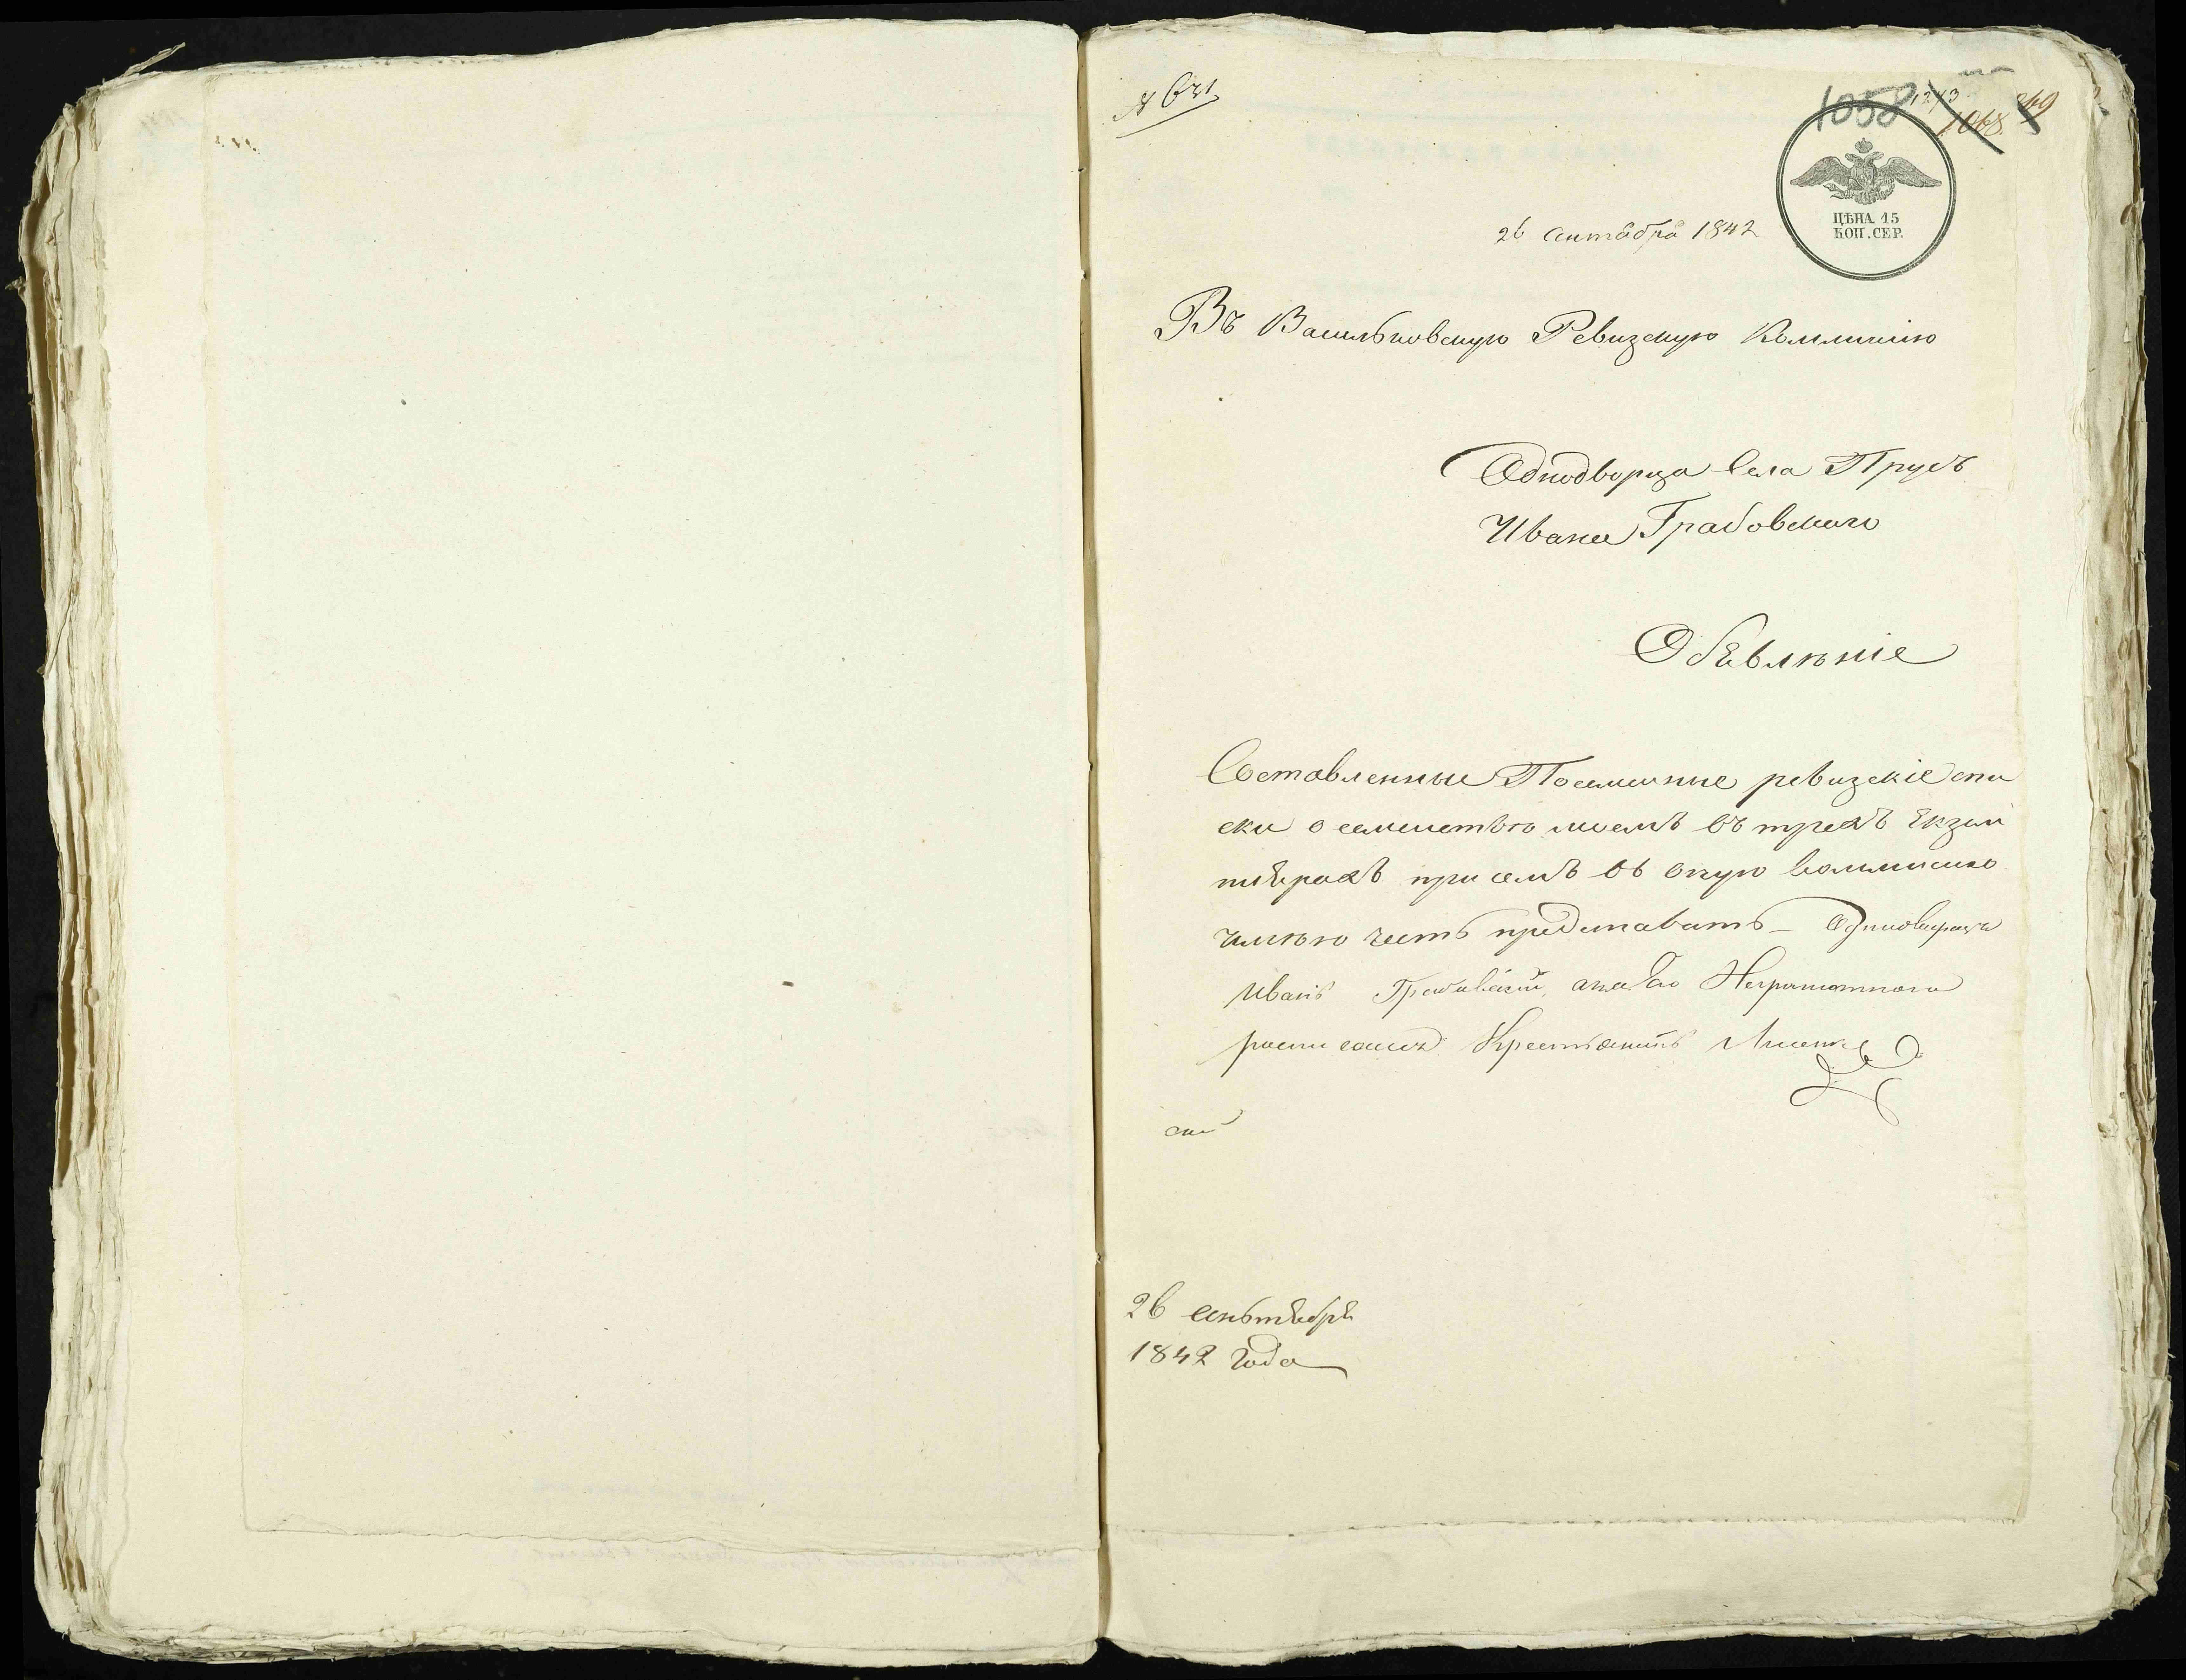 № 631
1058
1243
1068
26 Сентября 1842
ЦѢНА 15
КОП. СЕР.
Въ Васильковскую Ревизскую Коммисию
Однодворца Села Прусъ
Ивана Грабовского
Объявлѣние
Составленные Посемейные ревизские спи
ски о семействѣ моемъ въ трехъ Екзем
плярахъ при семъ въ оную коммисию
имѣю честь представить – Однодворецъ
Иванъ Грабовский, а за его Неграмотного
росписался Крестянинъ
26 сеньтября
1842 года